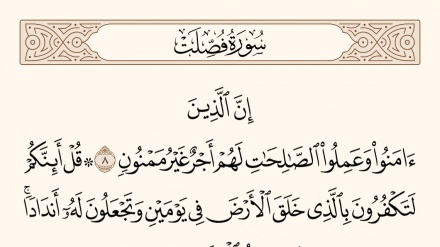 سُورَةُ فُصِّلَتْ
إِنَّ ٱلَّذِينَ
ءَامَنُوا۟ وَعَمِلُوا۟ ٱلصَّـٰلِحَـٰتِ لَهُمْ أَجْرٌ غَيْرُ مَمْنُونٍ ٨ ۞ قُلْ أَئِنَّكُمْ
لَتَكْفُرُونَ بِٱلَّذِى خَلَقَ ٱلْأَرْضَ فِى يَوْمَيْنِ وَتَجْعَلُونَ لَهُۥٓ أَندَادًا ۚ